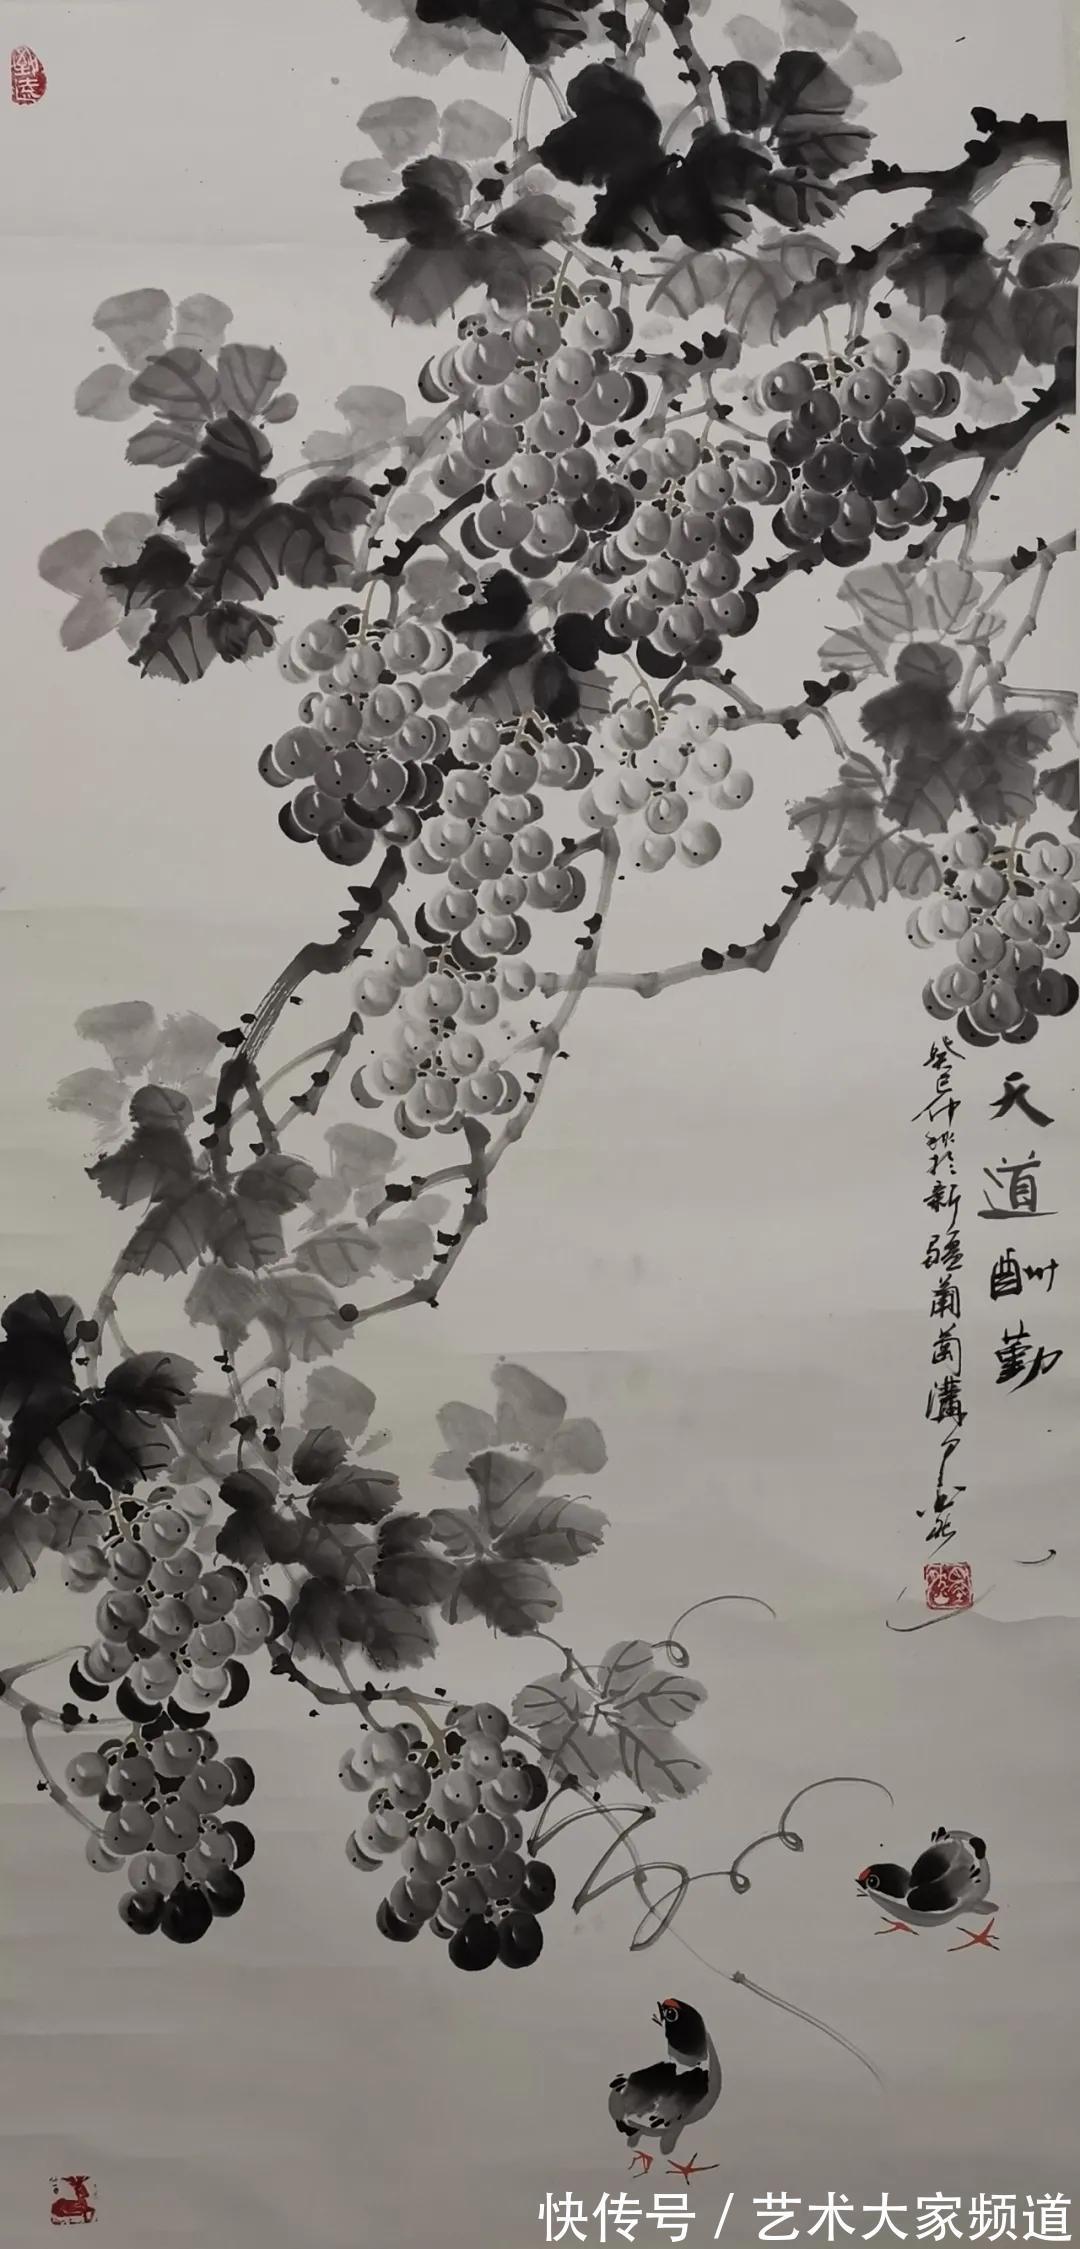 致远
天道酬勤
癸巳仲秋於新疆葡萄溝
快传号 / 艺术大家频道